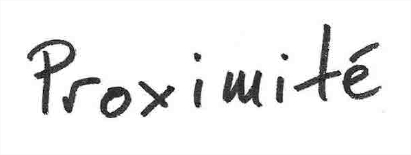 Proximité